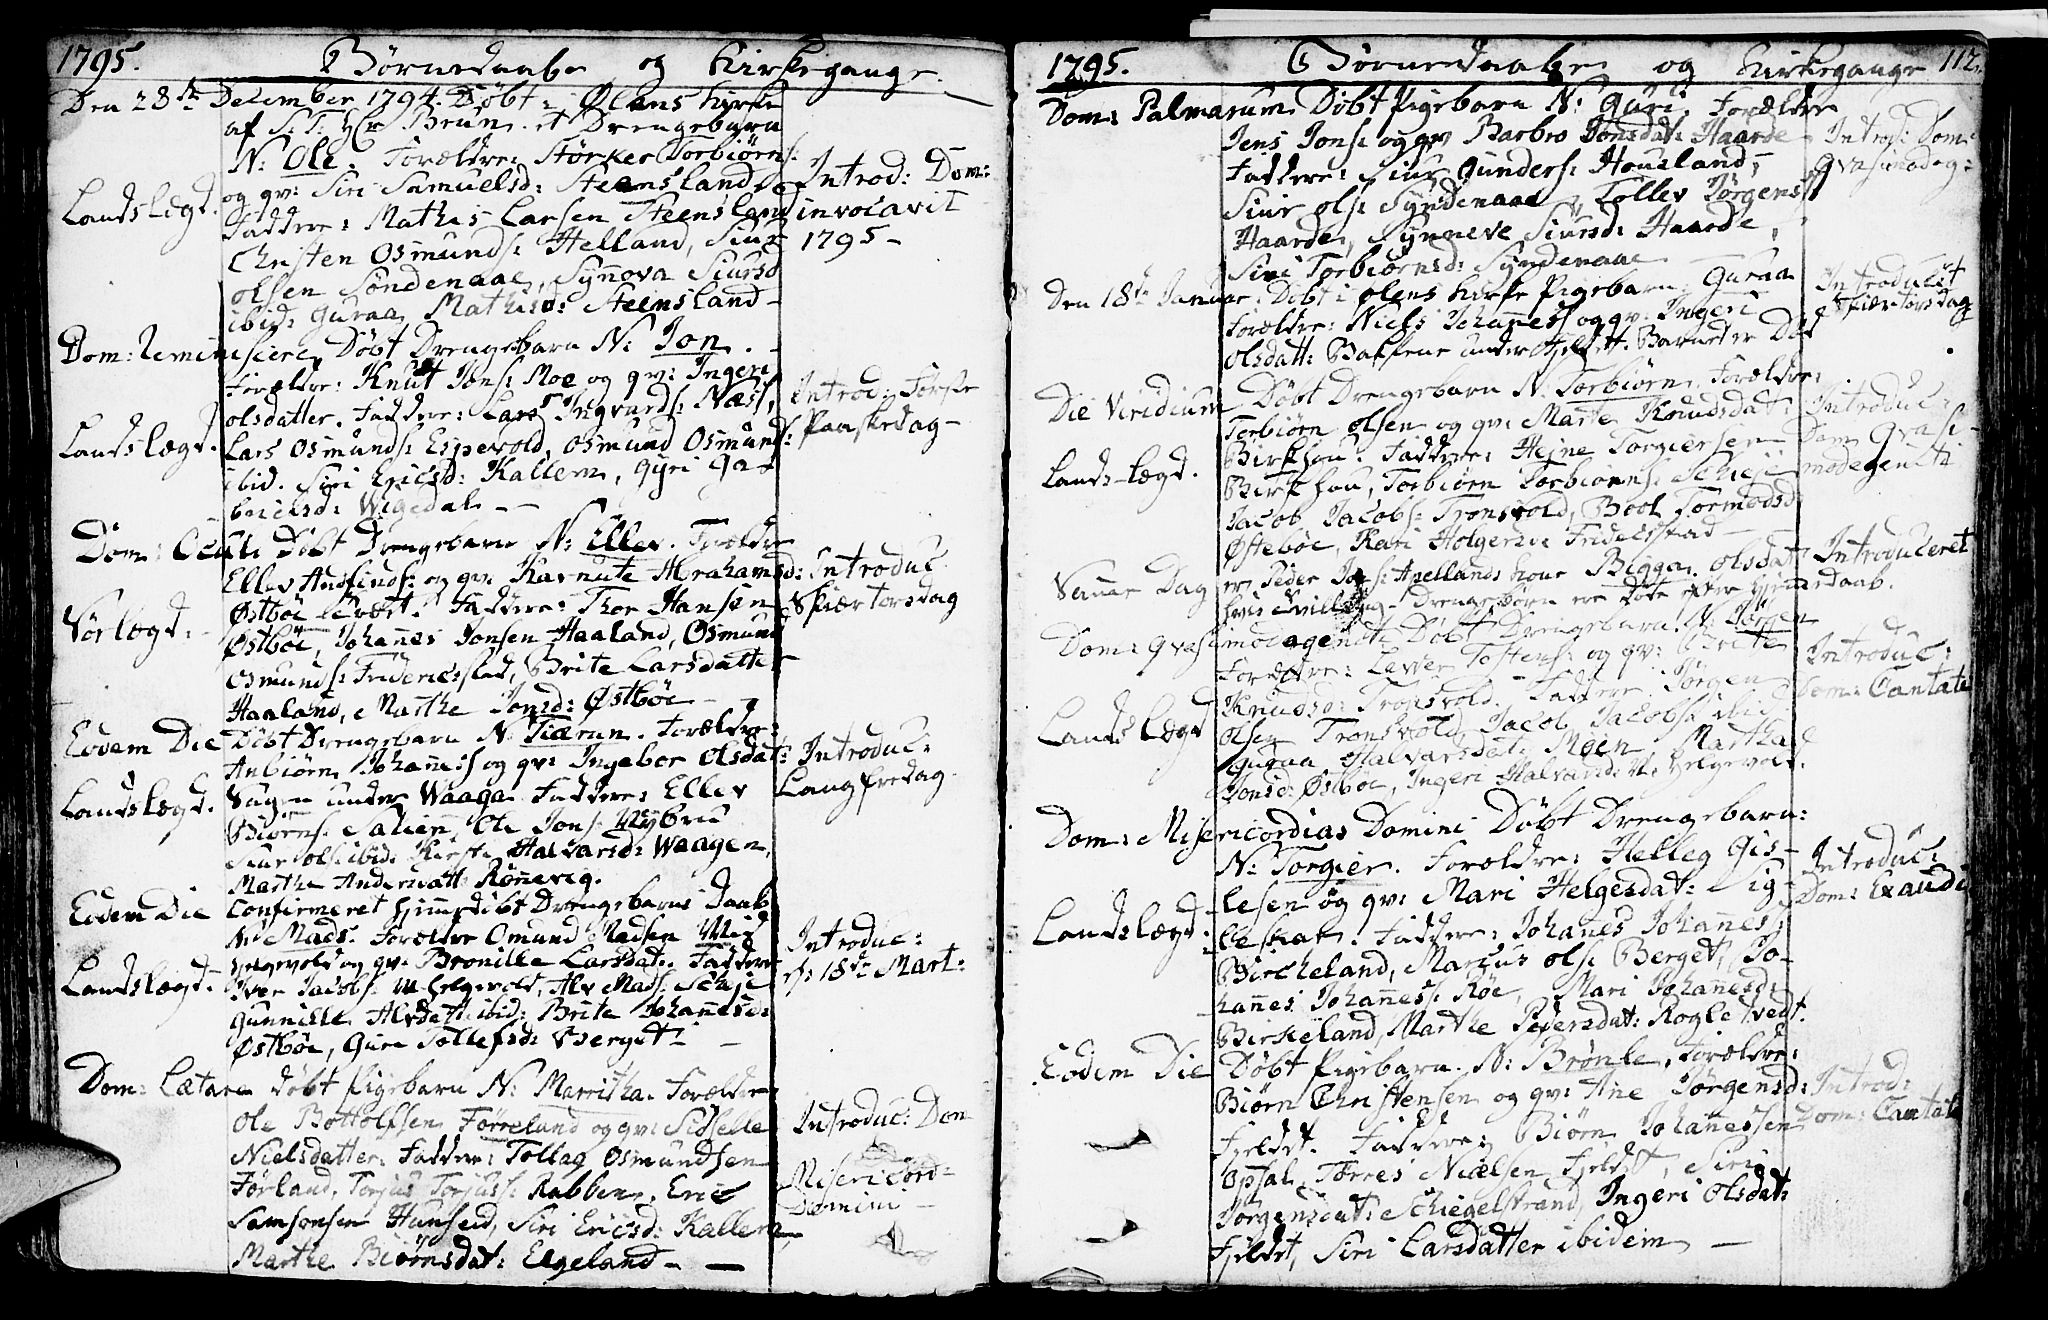 1795. Børnedaabe og Kirkegange.
Den 28de December 1794. Døbt i Ølens Kirke
af S: T: Hr Brun et Drengebarn
N: Ole. Forældre: Størker Torbiørns:
og qv: Siri Samuelsd: Steensland
Landslegd. Faddere: Mathis Larsen Steensland
Christen Osmunds: Helland, Siur
Olsen Søndenaae, Synnova Siursd
ibid: Guraa Mathisd: Steensland
Introd: Dom:
invocavit
1795 -
Dom: Reminiscere, Døbt Drengebarn N: Jon.
Forældre: Knut Jons: Moe og qv: Ingeri
Olsdatter. Faddere: Lars Ingvards: Næss,
Landslægd. Lars Osmunds: Espevold, Osmund Osmunds:
ibid. Siri Ericsd: Kallem, Gyri Ga-
brielsd: Wigedal -
Introd: Første
Paaskedag -
Dom: Oculi Døbt Drengebarn N: Ellev. Forældre
Ellev Andfinds: og qv: Karnute Abrahamsd:
Østbøe. Faddere: Thor Hansen
Sørlegd: Østbøe, Johanes Jonsen Haaland, Osmund
Osmunds: Fridericsstad, Brite Larsdatter
Haaland, Marthe Jonsd: Østbøe -
Introduc
Skiær torsdag
Eodem Die Døbt Drengebarn N: Tiærun. Forældre:
Anbiørn Johaness: og qv: Ingebor Olsdat:
Landslægd. under Waaga Faddere: Ellev
Biørns: Ole Jons:
Siur Ols: ibid: Kirste Halvarsd: Waagen,
Marthe Andersdatt: Rønnevig.
Introduc:
Langfredag.
Eodem Die Confirmeret hiemmedøbt Drengebarns Daab
N: Mads. Forældre Omund Madsen Mid
helgevold og qv: Bronille Larsdat: Faddere
Landslægd: Iver Jacobs: M:helgevold, Alv Mads: Scheje
Gunnille Alvsdatt: ibid: Brite Johanesd:
Østbøe, Guri Tollefsd: Berget
Introduc:
d: 18de Mart:
Dom: Lætare døbt Pigebarn N: Marritha. Forældre
Ole Bottolfsen Førreland og qv: Sidselle
Nielsdatter. Faddere: Tollag Osmundsen
Førland, Torjus Torjuss: Rabben, Eric
Samsonsen Hunseid, Siri Ericsd: Kallem
Marthe Biørnsdat: Eigeland -
Introduc: Dom
Misericord-
Domini -
1795. Børnedaabe og Kirkegange 112.
Dom: Palmarum Døbt Pigebarn N: Guri Forældre
Jens Jons: og qv: Barbro Jonsdat: Haarde
Faddere: Siur Gunders: Houeland,
Siur Ols: Syndenaae, Tollev Jørgens:
Haarde, Synneve Siursd: Haarde,
Siri Torbiørnsd: Syndenaae
Introd: Dom:
Qvasimodog:
Den 18de Januar: Døbt i Ølens Kirke Pigebarn: Guraa
Forældre: Niels Johaness: og qv: Ingeri
Olsdatt: Bakkene under Fjeldet. Barnet er Død
Introduceret
Skiærtorsdag
Die Viridium Døbt Drengebarn N: Torbiørn. Forældre:
Torbiørn Olsen og qv: Marte Knudsdat:
Birkhou. Faddere: Hejne Torgiersen
Lands-lægd. Birkhou, Torbiørn Torbiørns: Scheje
Jacob Jacobs: Tronsvold, Boel Tormodsd
Østebøe, Kari Holgersd: Fridricstad
Introduc:
Dom Qvasi-
modogeniti
Samme Dag er Peder Jos: Apellands Kone Begga Olsdat: Introduceret
hvis Tvilling- Drengebørn ere døde efter hjemmedaab.
Dom: Qvasimodogenit: Døbt Drengebarn N: Jørgen
Forældre: Lever Tostens: og qv: Berete
Knudsd: Tronsvold. Faddere: Jørgen
Landslægd Olsen Tronsvold, Jacob Jacobs: ibid
Guraa Halvarsdat: Moen, Martha
Jonsd: Østbøe, Ingeri Halvarsd: M: helgevold.
Introduc:
Dom: Cantate
Dom: Misericordias Domini Døbt Drengebarn:
N: Torgier. Forældre: Helleg Gis-
lesen og qv: Mari Helgesdat: Sig-
Landslægd: leskar. Faddere: Johanes Johaness:
Bircheland, Marcus Ols: Berget, Jo-
hanes Johaness: Røe, Mari Johanesd:
Birkeland, Marthe Pedersdat: Rogletvedt.
Introduc:
Dom: Exaudi
Eodem Die Døbt Pigebarn. N: Brønle, Forældre:
Biørn Christensen og qv: Ane Jørgensd:
Fjeldet. Faddere: Biørn Johannessen
Opsal, Tørres Nielsen Fjeldet, Siri
Jørgensdat: Schiegelstrand, Ingeri Olsdat:
Fjeldet, Siri Larsdatter ibidem -
Introd:
Dom: Cantate